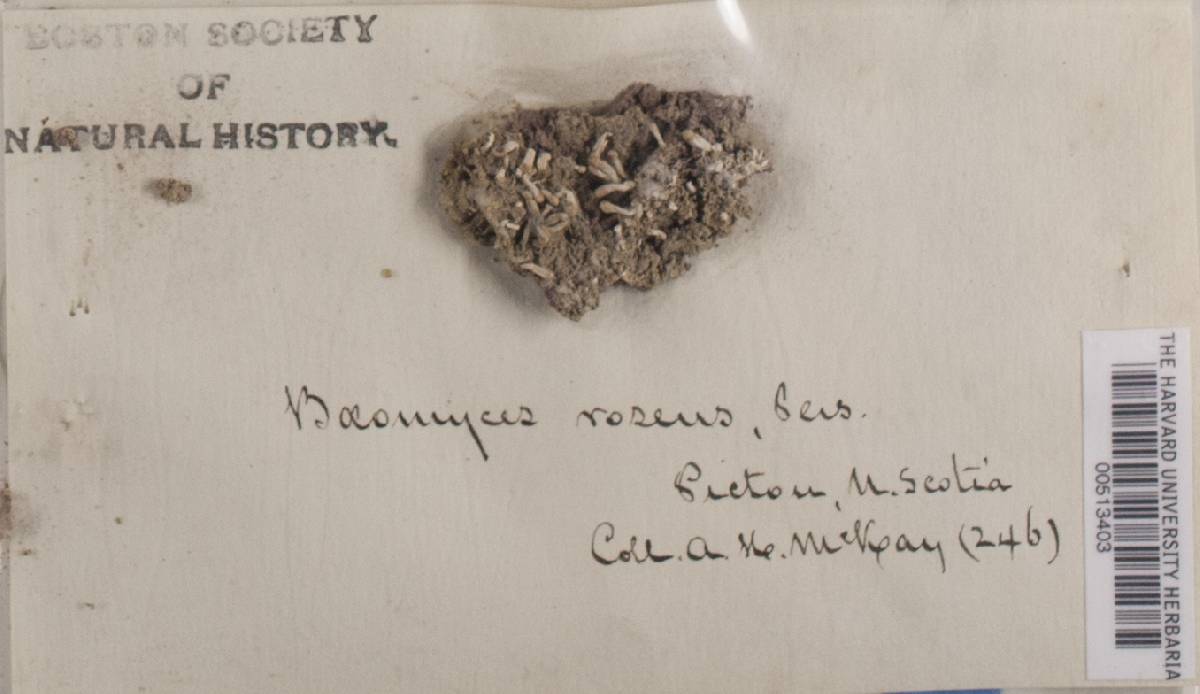 BOSTON SOCIETY
OF
NATURAL HISTORY.
Bæomyces roseus, Pers.
Pictou, N. Scotia
Coll. A. H. McKay (246)
THE HARVARD UNIVERSITY HERBARIA
00513403